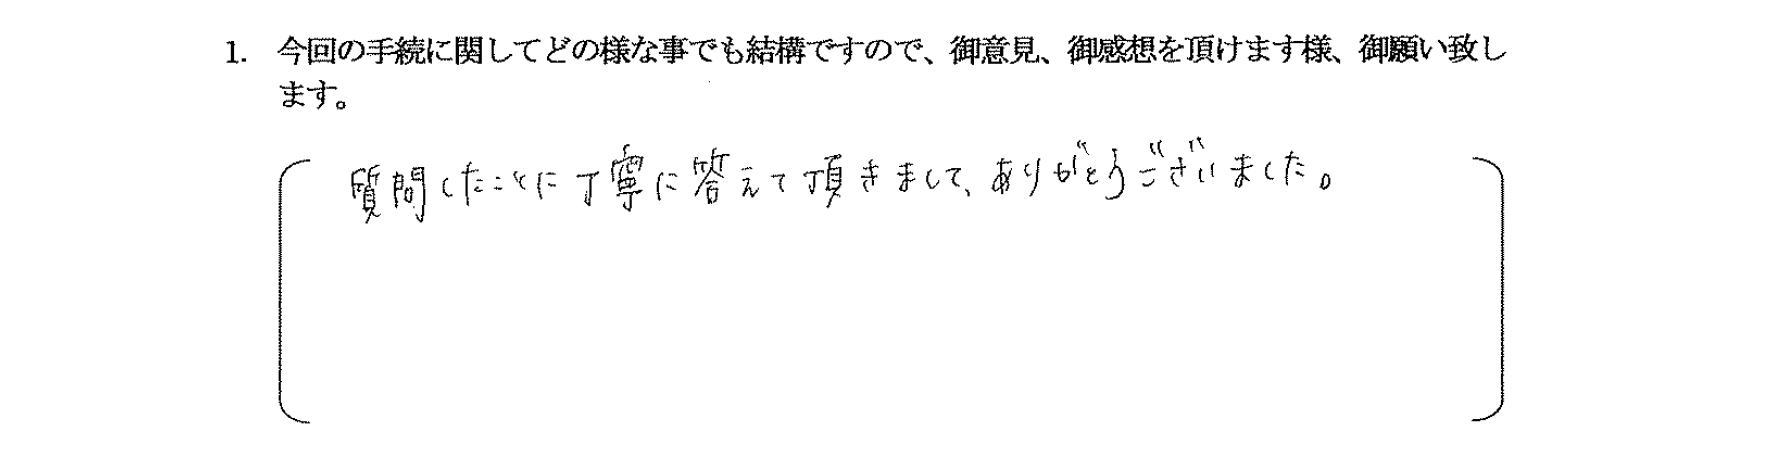 1. 今回の手続に関してどの様な事でも結構ですので、御意見、御感想を頂けます様、御願い致し
ます。
質問したことに丁寧に答えて頂きまして、ありがとうございました。